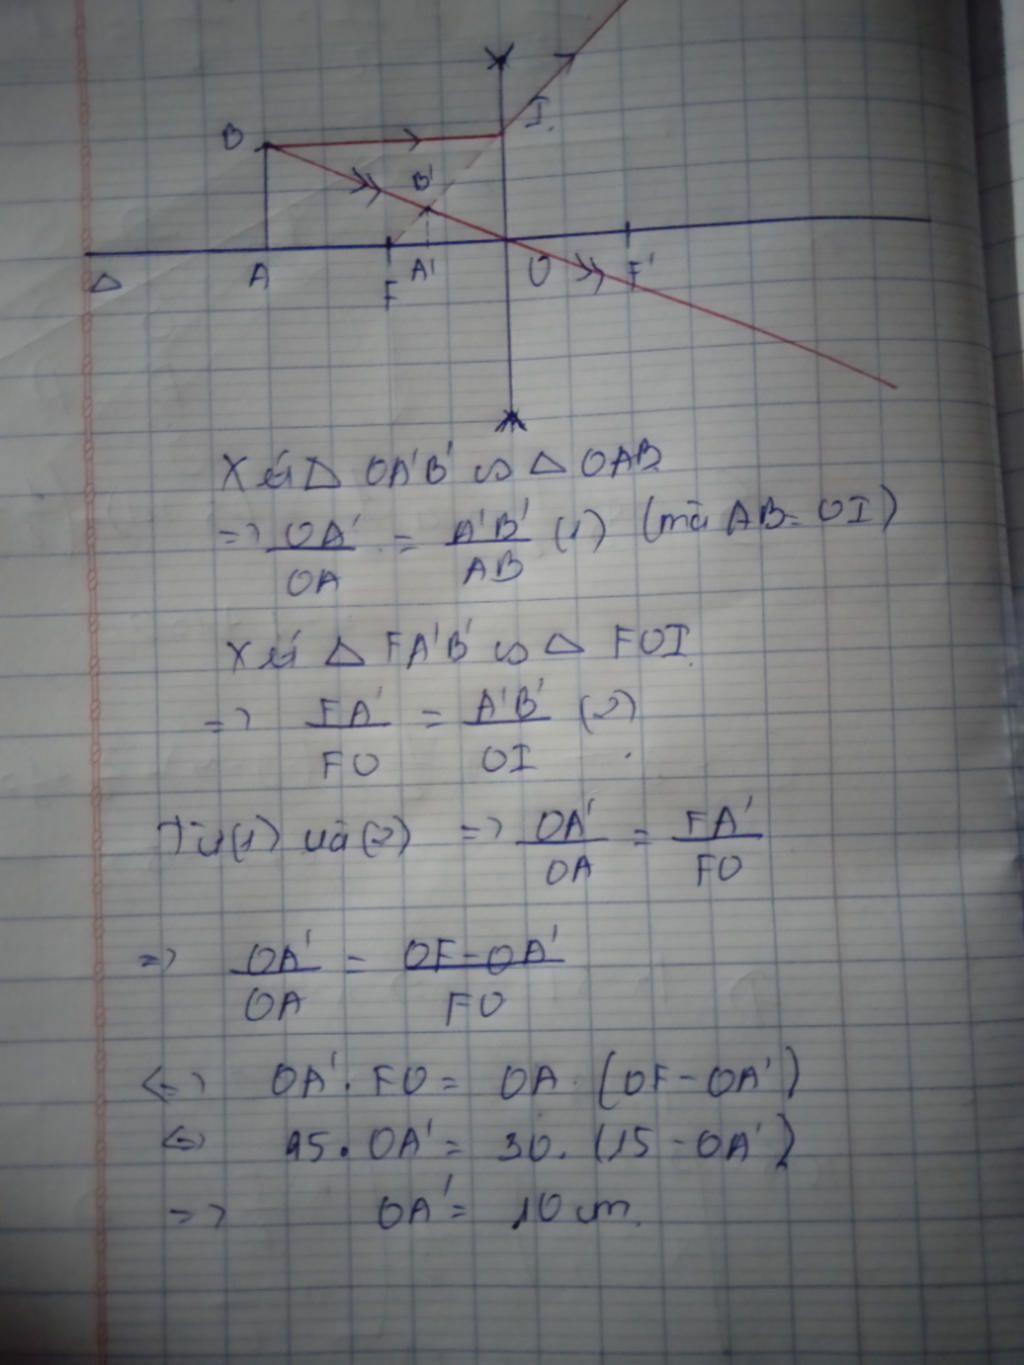 B
I.
B'
Δ A F A' O F'
Xét Δ OA'B' ∽ Δ OAB
=> OA'/OA = A'B'/AB (1) (mà AB = OI)
Xét Δ FA'B' ∽ Δ FOI
=> FA'/FO = A'B'/OI (2)
Từ (1) và (2) => OA'/OA = FA'/FO
=> OA'/OA = OF - OA'/FO
<=> OA' . FO = OA . (OF - OA')
<=> 15 . OA' = 30 . (15 - OA')
=> OA' = 10 cm.